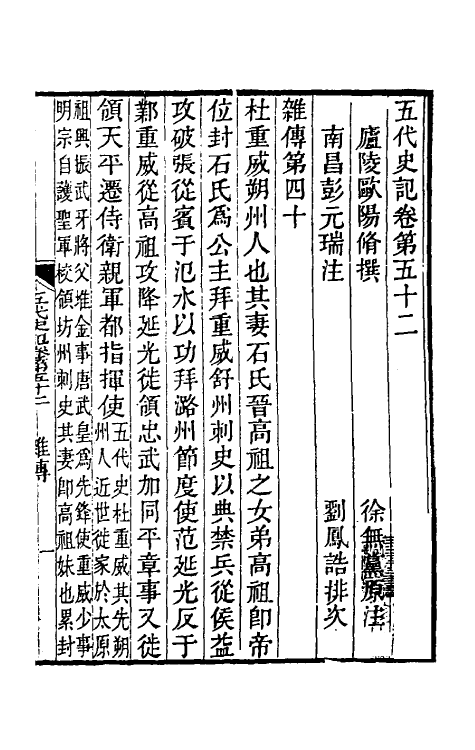 五代史記卷第五十二
廬陵歐陽脩撰　徐無黨原注
南昌彭元瑞注　劉鳳誥排次
雜傳第四十
杜重威朔州人也其妻石氏晉高祖之女弟高祖即帝
位封石氏爲公主拜重威舒州刺史以典禁兵從侯益
攻破張從賓于汜水以功拜潞州節度使范延光反于
鄴重威從高祖攻降延光徙領忠武加同平章事又徙
領天平遷侍衛親軍都指揮使五代史杜重威其先朔
州人近世徙家於太原
祖興振武牙將父堆金事唐武皇爲先鋒使重威少事
明宗自護聖軍校領坊州刺史其妻即高祖妹也累封
五代史記卷第五十二　雜傳　一